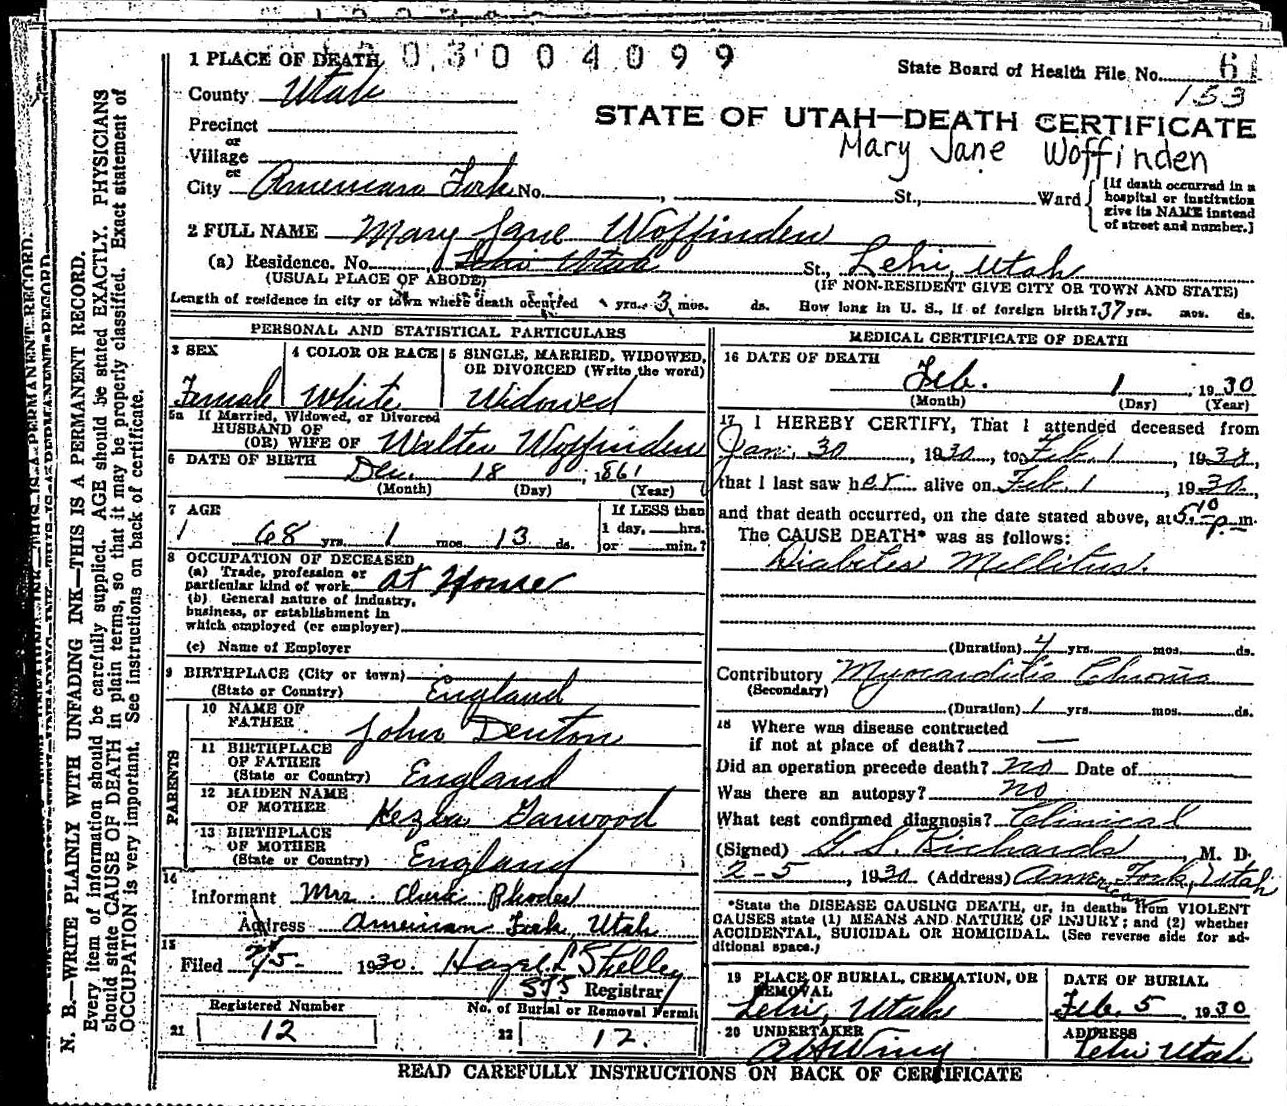 1 PLACE OF DEATH 03004099
State Board of Health File No. 61
153
County Utah
STATE OF UTAH—DEATH CERTIFICATE
Mary Jane Woffinden
Precinct
or
Village
or
City American Fork No. , St., Ward
[If death occurred in a
hospital or institution
give its NAME instead
of street and number.]
2 FULL NAME Mary Jane Woffinden
(a) Residence. No. Lehi Utah St., Lehi, Utah
(USUAL PLACE OF ABODE) (IF NON-RESIDENT GIVE CITY OR TOWN AND STATE)
Length of residence in city or town where death occurred yrs. 3 mos. ds. How long in U. S., if of foreign birth? 37 yrs. mos. ds.
PERSONAL AND STATISTICAL PARTICULARS
3 SEX
Female
4 COLOR OR RACE
White
5 SINGLE, MARRIED, WIDOWED,
OR DIVORCED (Write the word)
Widowed
5a If Married, Widowed, or Divorced
HUSBAND OF
(OR) WIFE OF Walter Woffinden
6 DATE OF BIRTH Dec. 18, 1861
(Month) (Day) (Year)
7 AGE
68 yrs. 1 mos. 13 ds.
If LESS than
1 day, hrs.
or min.?
8 OCCUPATION OF DECEASED
(a) Trade, profession or
particular kind of work At Home
(b) General nature of industry,
business, or establishment in
which employed (or employer)
(c) Name of Employer
9 BIRTHPLACE (City or town)
(State or Country) England
PARENTS
10 NAME OF
FATHER John Denton
11 BIRTHPLACE
OF FATHER
(State or Country) England
12 MAIDEN NAME
OF MOTHER Kezia Garwood
13 BIRTHPLACE
OF MOTHER
(State or Country) England
14
Informant Mrs. Rhodes
Address American Fork, Utah
15
Filed 2/5- 1930. Hazel L Shelley
575 Registrar
Registered Number
21 12
No. of Burial or Removal Permit
22 12.
MEDICAL CERTIFICATE OF DEATH
16 DATE OF DEATH
Feb. 1, 1930
(Month) (Day) (Year)
17 I HEREBY CERTIFY, That I attended deceased from
Jan. 30, 1930, to Feb. 1, 1930
that I last saw her alive on Feb. 1, 1930,
and that death occurred, on the date stated above, at 5:10 p.m.
The CAUSE DEATH* was as follows:
Diabetes Mellitus.
(Duration) 4 yrs. mos. ds.
Contributory Myocarditis Chronic
(Secondary)
(Duration) 1 yrs. mos. ds.
18 Where was disease contracted
if not at place of death? —
Did an operation precede death? no Date of
Was there an autopsy? no
What test confirmed diagnosis? Clinical
(Signed) G. S. Richards, M. D.
2-5, 1930 (Address) American Fork, Utah
*State the DISEASE CAUSING DEATH, or, in deaths from VIOLENT
CAUSES state (1) MEANS AND NATURE OF INJURY; and (2) whether
ACCIDENTAL, SUICIDAL OR HOMICIDAL. (See reverse side for ad-
ditional space.)
19 PLACE OF BURIAL, CREMATION, OR
REMOVAL
Lehi, Utah
DATE OF BURIAL
Feb. 5 1930
20 UNDERTAKER
A H Wing
ADDRESS
Lehi Utah
READ CAREFULLY INSTRUCTIONS ON BACK OF CERTIFICATE
N. B.—WRITE PLAINLY WITH UNFADING INK—THIS IS A PERMANENT RECORD.
Every item of information should be carefully supplied. AGE should be stated EXACTLY. PHYSICIANS
should state CAUSE OF DEATH in plain terms, so that it may be properly classified. Exact statement of
OCCUPATION is very important. See instructions on back of certificate.